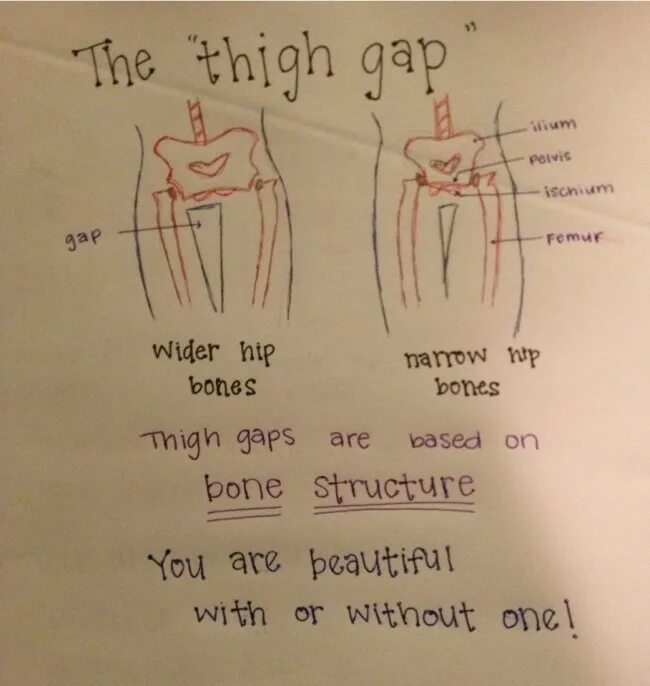 The "thigh gap"
ilium
pelvis
ischium
gap
Femur
wider hip
bones
narrow hip
bones
Thigh gaps are based on
bone structure
You are beautiful
with or without one!